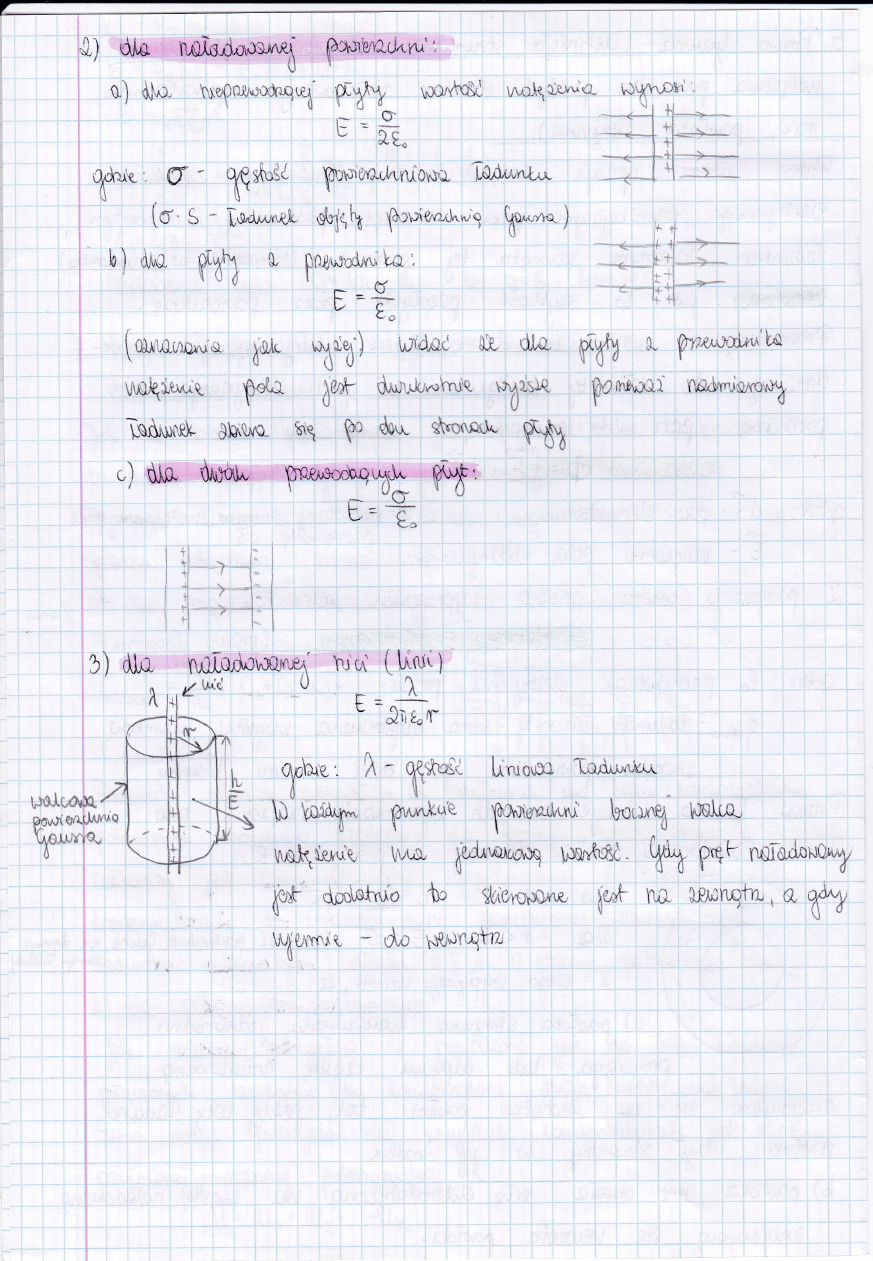 2) dla naładowanej powierzchni:
a) dla nieprzewodzącej płyty wartość natężenia wynosi:
E = σ/2ε₀
gdzie: σ - gęstość powierzchniowa ładunku
(σ·S - ładunek objęty powierzchnią Gaussa)
b) dla płyty z przewodnika:
E = σ/ε₀
(oznaczania jak wyżej) widać że dla płyty z przewodnika
natężenie pola jest dwukrotnie wyższe ponieważ nadmiarowy
ładunek zbiera się po dwu stronach płyty
c) dla dwóch przewodzących płyt:
E = σ/ε₀
3) dla naładowanej nici (linii)
λ nić
E = λ/2πε₀r
r
h
E
walcowa
powierzchnia
Gaussa
gdzie: λ - gęstość liniowa ładunku
W każdym punkcie powierzchni bocznej walca
natężenie ma jednakową wartość. Gdy pręt naładowany
jest dodatnio to skierowane jest na zewnątrz, a gdy
ujemnie - do wewnątrz